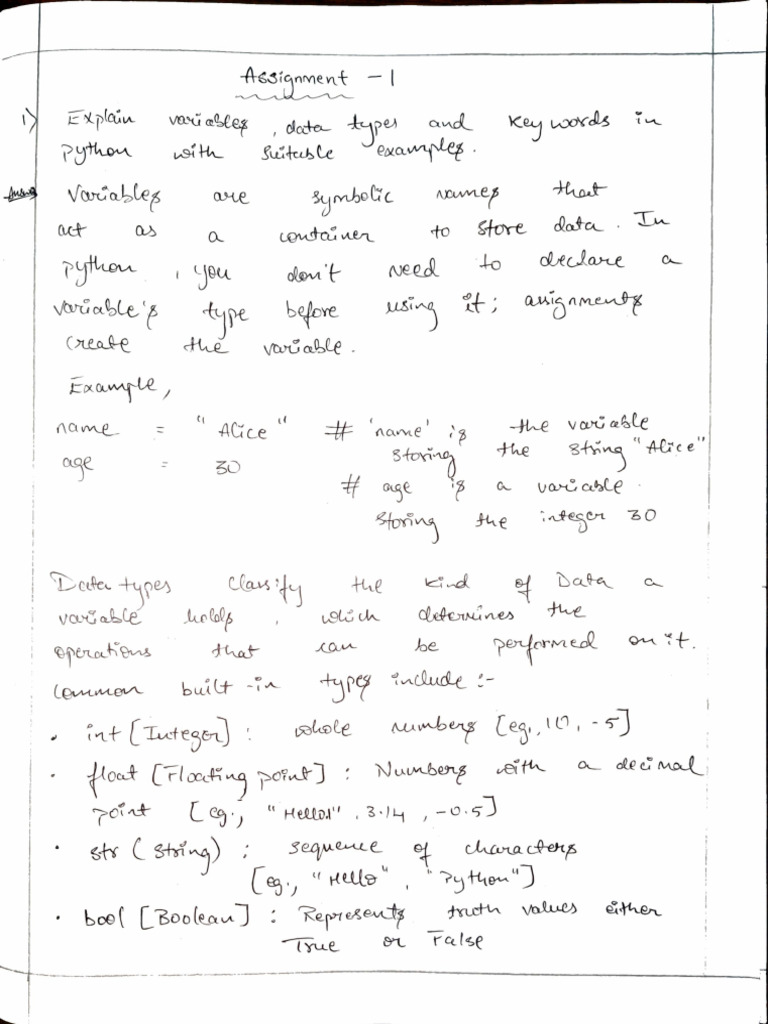 Assignment - 1
1) Explain variables, data types and keywords in
python with suitable examples.
Ans Variables are symbolic names that
act as a container to store data. In
python, you don't need to declare a
variable's type before using it; assignments
create the variable.
Example,
name = "Alice" # 'name' is the variable
storing the string "Alice"
age = 30 # age is a variable
storing the integer 30
Data types classify the kind of Data a
variable holds, which determines the
operations that can be performed on it.
Common built-in types include :-
• int [Integer] : whole numbers [eg., 10, -5]
• float [Floating point] : Numbers with a decimal
point [eg., "Hello", 3.14, -0.5]
• str (string) : sequence of characters
[eg., "Hello", "Python"]
• bool [Boolean] : Represents truth values either
True or False